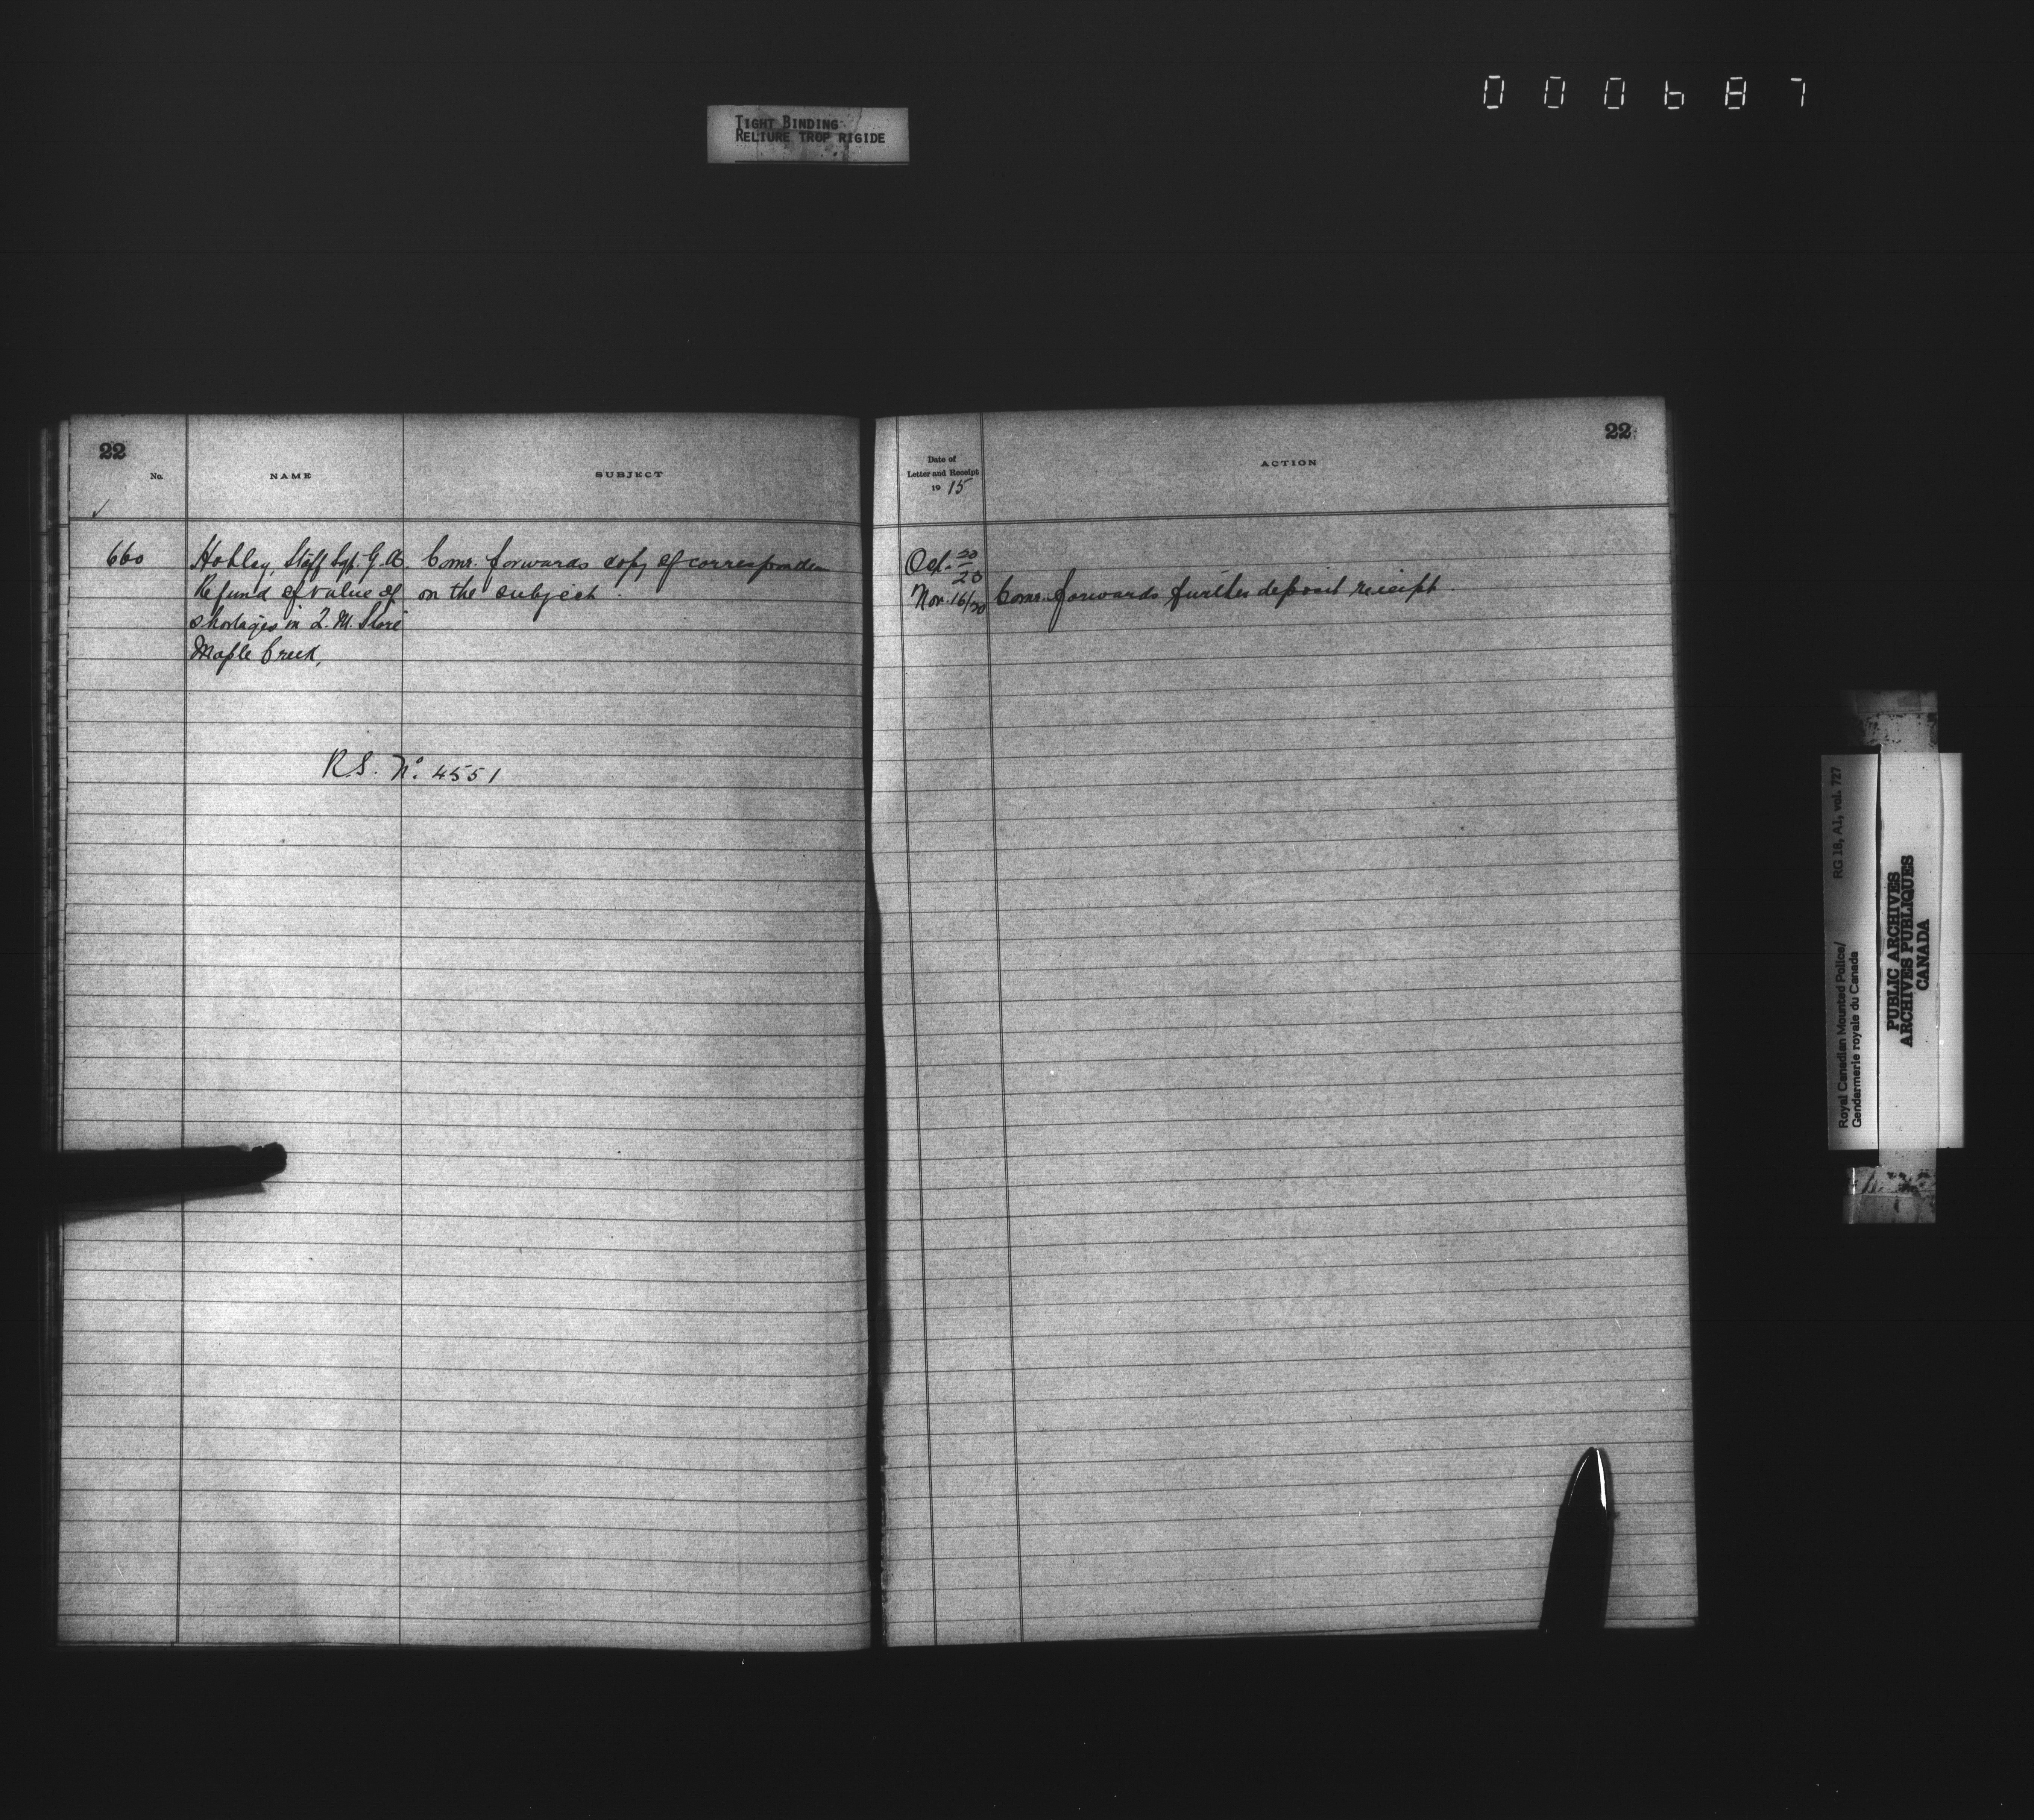 000687
TIGHT BINDING
RELIURE TROP RIGIDE
22
No.
NAME
SUBJECT
660
Hobley, Staff Sgt. G.A. Comr. forwards copy of corresponden
Refund of value of on the subject.
shortages in Q.M. Store
Maple Creek,
R.S. No. 4551
22
Date of
Letter and Receipt
1915
ACTION
Oct. 20/23
Nov. 16/20 Comr. forwards further deposit receipt.
RG 18, A1, vol. 727
Royal Canadian Mounted Police/
Gendarmerie royale du Canada
PUBLIC ARCHIVES
ARCHIVES PUBLIQUES
CANADA